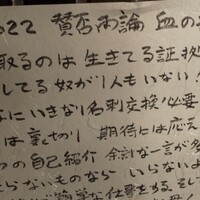 022 賛否両論 血の
取るのは 生きてる証拠
してる奴が1人もいない!
にいきなり名刺交換必要
は裏切り 期待には応え
つの自己紹介 余計な一言が多
らないものなら いらないよ
簡単な仕事をする そして